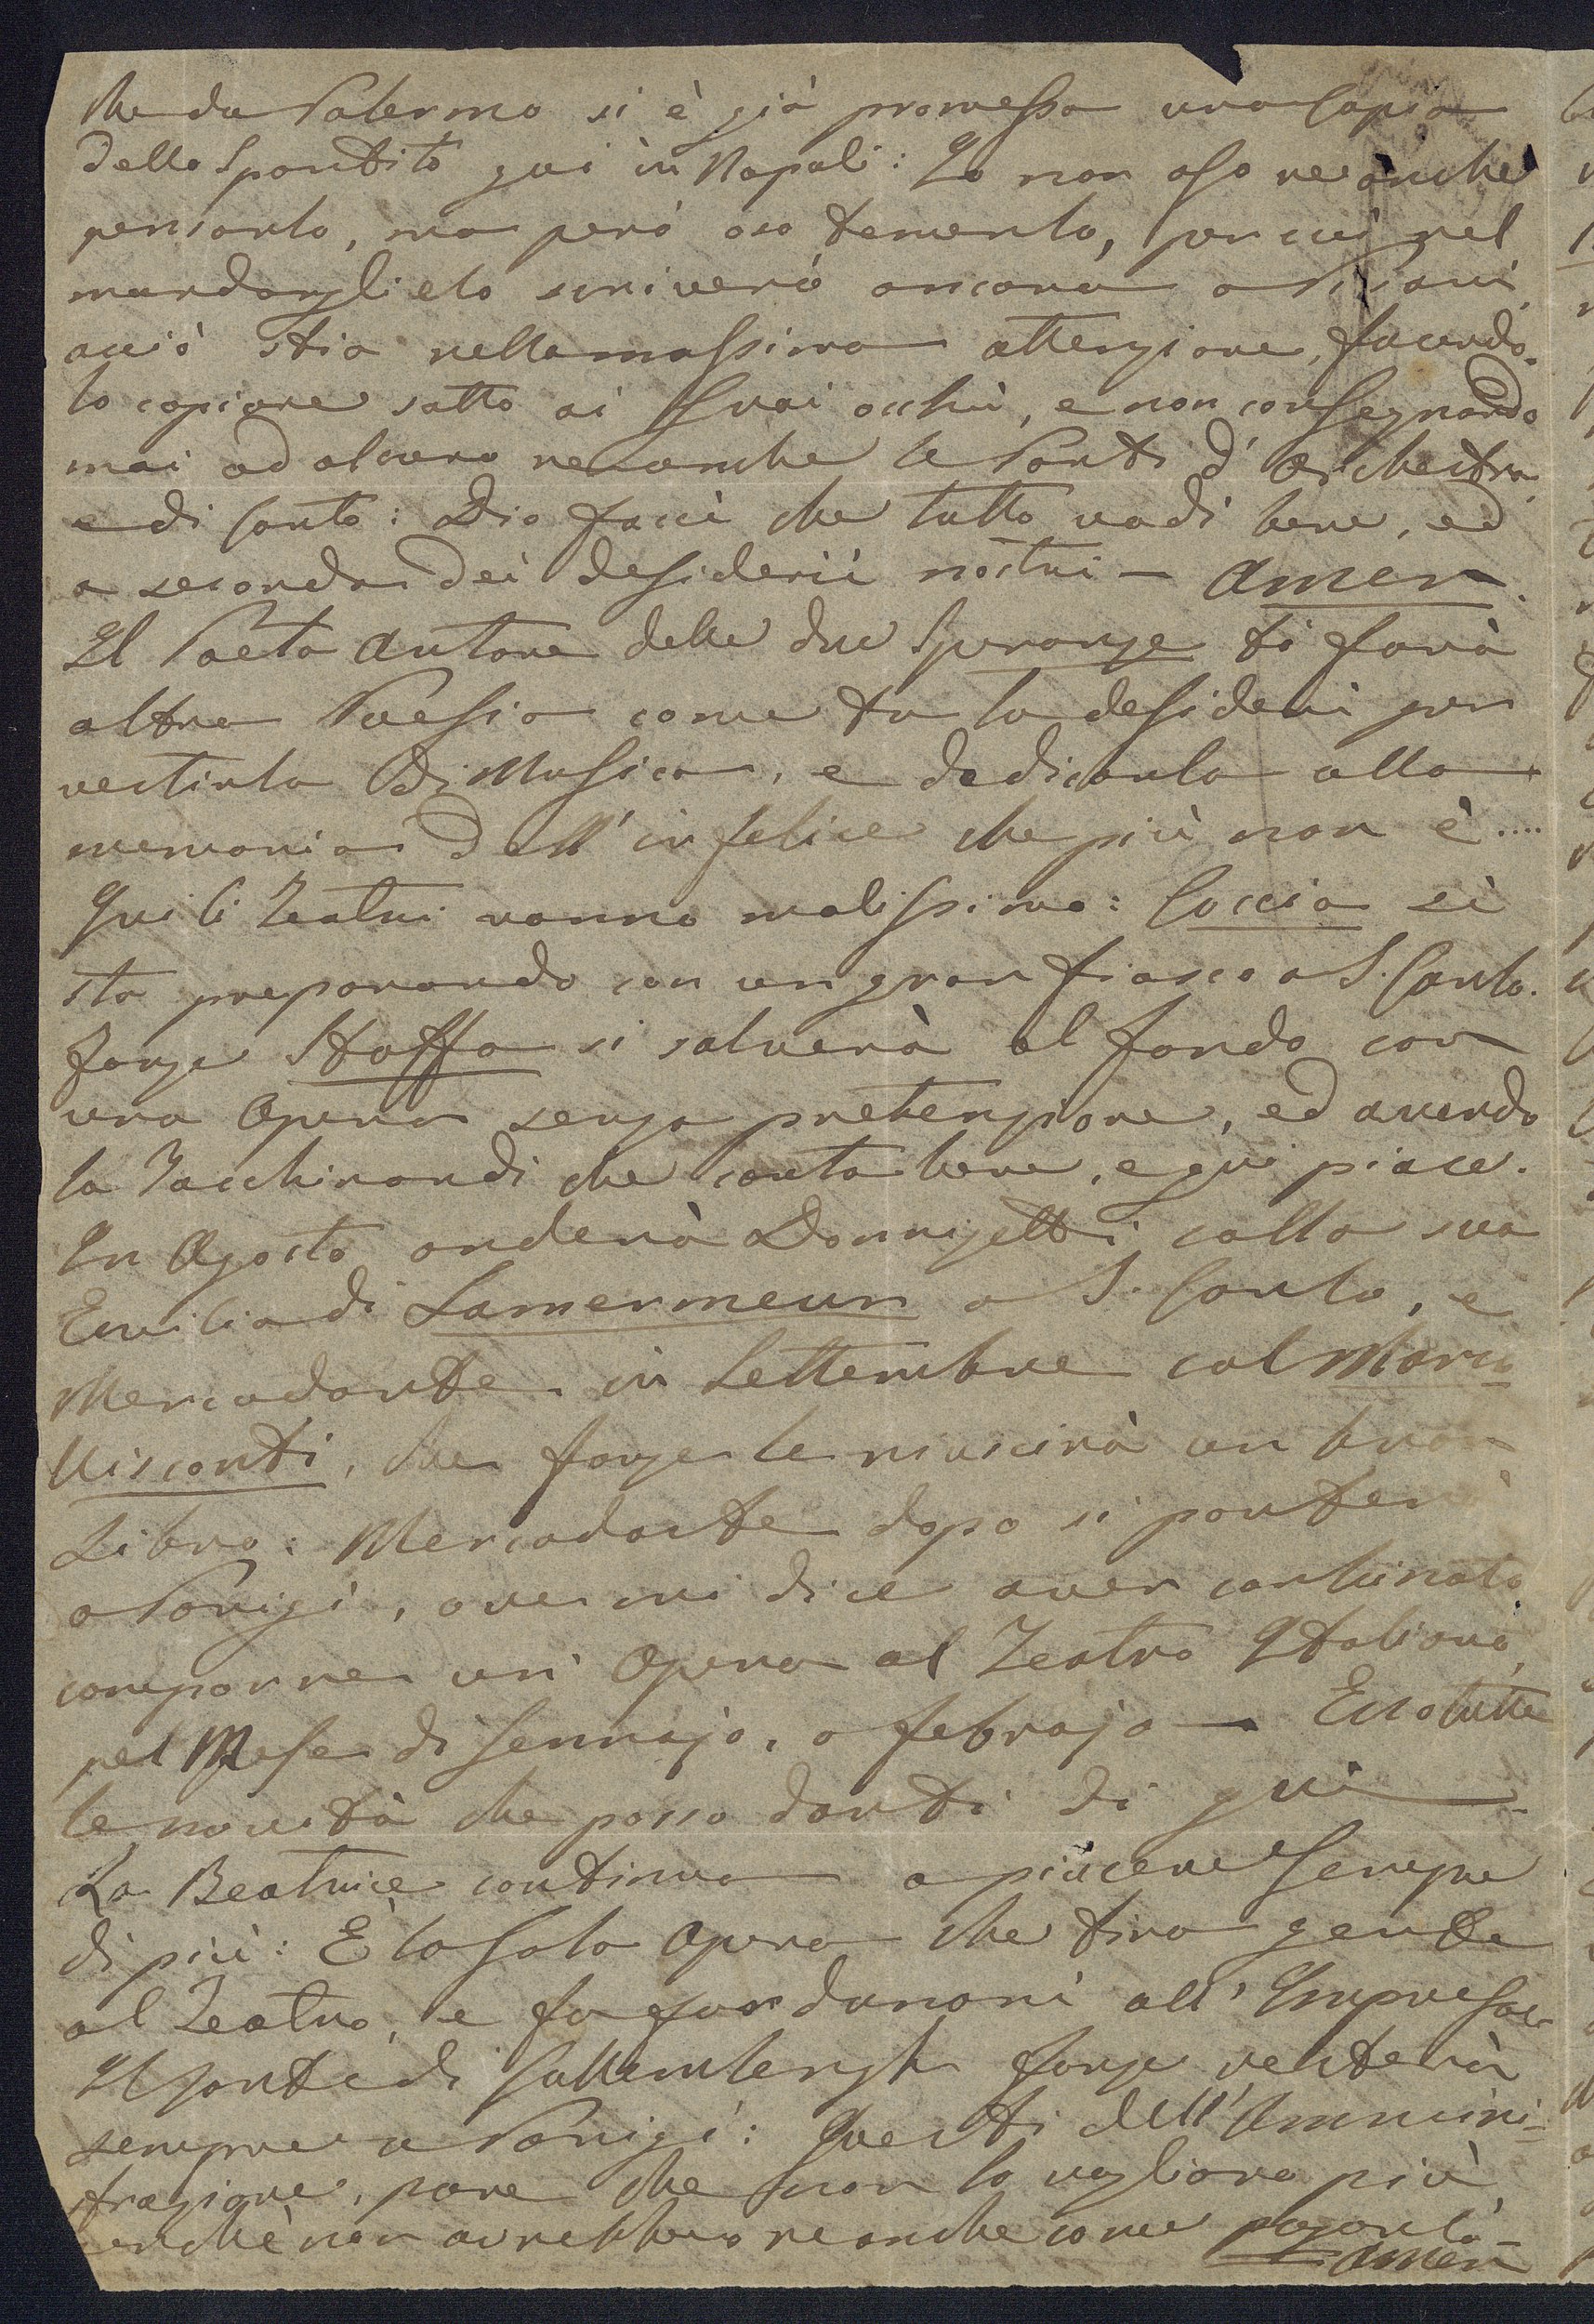 che da Palermo si è già promessa una Copia
dello Spartito qui in Napoli: Io non oso neanche
pensarlo, ma però oso temerlo, per cui nel
mandarglielo scriverò ancora a Pisani
acciò stia nella massima attenzione, facendo-
lo copiare sotto ai Suoi occhii, e non consegnando
mai ad alcuno neanche le Parti d'Orchestra
e di Canto: Dio facci che tutto vadi bene, ed
a seconda dei desiderii nostri - Amen.
Il Poeta Autore delle due Speranze ti farà
altra Poesia come tu la desideri per
vestirla di Musica, e dedicarla alla
memoria dell'infelice che più non è ....
Qui li Teatri vanno malissimo: Coccia si
sta preparando con un gran fiasco a S. Carlo.
Forze Staffa si salverà al fondo con
una Opera senza pretenzione, ed avendo
la Tacchinardi che canta bene, e qui piace.
In Agosto anderà Donnizetti colla sua
Emilia di Lamermeur a S. Carlo, e
Mercadante in Settembre col Marco
Visconti, che forze le riuscirà un buon
Libro: Mercadante dopo si porterà
a Parigi, ove mi dice aver combinato
comporre un' Opera al Teatro Italiano,
pel Mese di Gennajo, o febrajo - Ecco tutte
le novità che posso darti di quì -
La Beatrice continua a piacere Sempre
di più: È la sola Opera che tira gente
al Teatro, e fa far danari all'Impresa
Il Conte di Gallemberg forze resterà
sempre a Parigi: Questi dell'Ammini-
strazione, pare che non lo vogliono più
perchè non avrebbero neanche come pagarlo
Amen